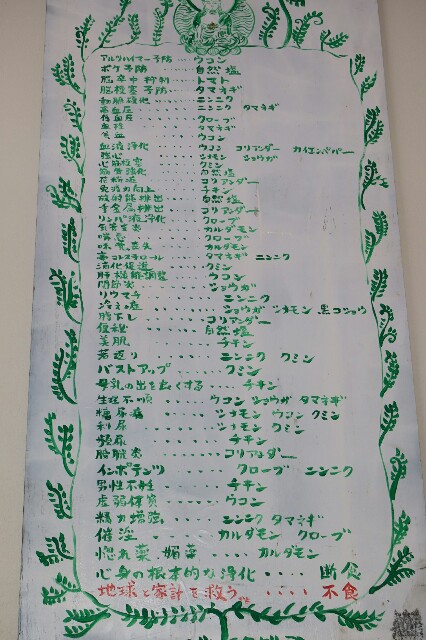 アルツハイマー予防 ‥‥ ウコン
ボケ予防 ‥‥‥ 自然塩
脳卒中抑制 ‥‥ トマト
脳梗塞予防 ‥‥ タマネギ
動脈硬化 ‥‥ ニンニク
高血圧 ‥‥‥ ニンニク タマネギ
低血圧 ‥‥ クローブ
血栓 ‥‥‥ タマネギ
貧血 ‥‥‥ ウコン
血液浄化 ‥‥ ウコン コリアンダー カイエンペパー
強心 ‥‥‥ シナモン ショウガ
心筋梗塞 ‥‥ クミン
筋骨強化 ‥‥ 自然塩
花粉症 ‥‥ コリアンダー
免疫力向上 ‥‥ チキン
放射能排出 ‥‥ 自然塩
重金属排出 ‥‥ コリアンダー
リンパ液浄化 ‥‥ クローブ
気管支炎 ‥‥ カルダモン
喘息 ‥‥‥ クローブ
味覚喪失 ‥‥ カルダモン
高コレステロール ‥‥ タマネギ ニンニク
消化促進 ‥‥ クミン
肝機能調整 ‥‥ ウコン
関節炎 ‥‥ ショウガ
リウマチ ‥‥ ニンニク
冷え症 ‥‥ ショウガ シナモン 黒コショウ
腹下し ‥‥ コリアンダー
便秘 ‥‥‥ 自然塩
美肌 ‥‥‥ チキン
若返り ‥‥‥ ニンニク クミン
バストアップ ‥‥‥ クミン
母乳の出を良くする ‥‥ チキン
生理不順 ‥‥ ウコン ショウガ タマネギ
糖尿病 ‥‥‥ シナモン ウコン クミン
利尿 ‥‥‥ シナモン ニンニク
頻尿 ‥‥‥ チキン
膀胱炎 ‥‥‥ コリアンダー
インポテンツ ‥‥ クローブ ニンニク
男性不妊 ‥‥‥ チキン
虚弱体質 ‥‥‥ ウコン
精力増強 ‥‥‥ ニンニク タマネギ
催淫 ‥‥‥ カルダモン クローブ
惚れ薬 媚薬 ‥‥‥ カルダモン
心身の根本的な浄化 ‥‥ 断食
地球と家計を救う ‥‥ 不食